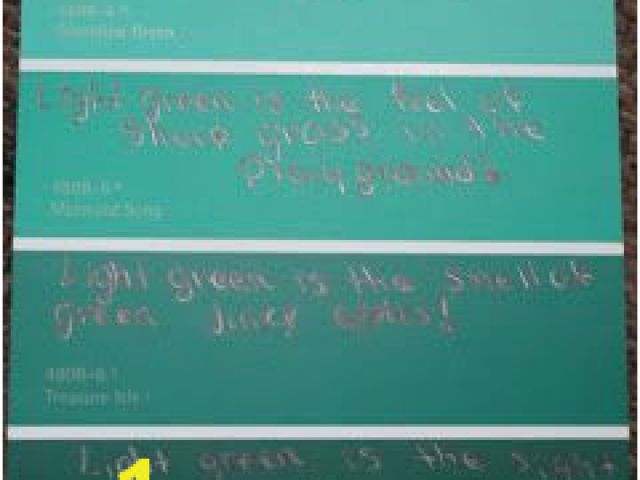 Light green is the feel of
Sharp grass in the
Playgrounds
Mermaid Song
Light green is the smell of
green juicy apples!
Treasure Isle
Light green is the sight
1